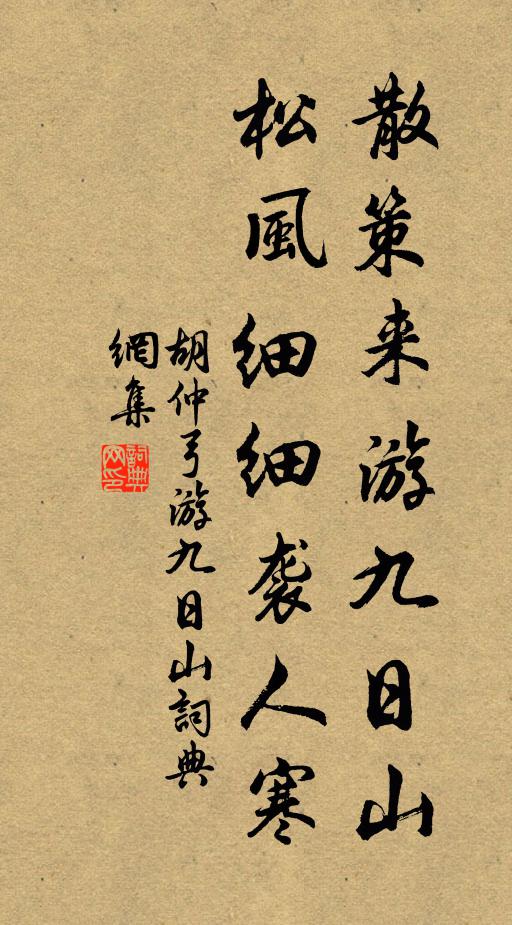 散策来游九日山
松風细细袭人寒
胡仲弓游九日山詞典
網集
詞典
网印